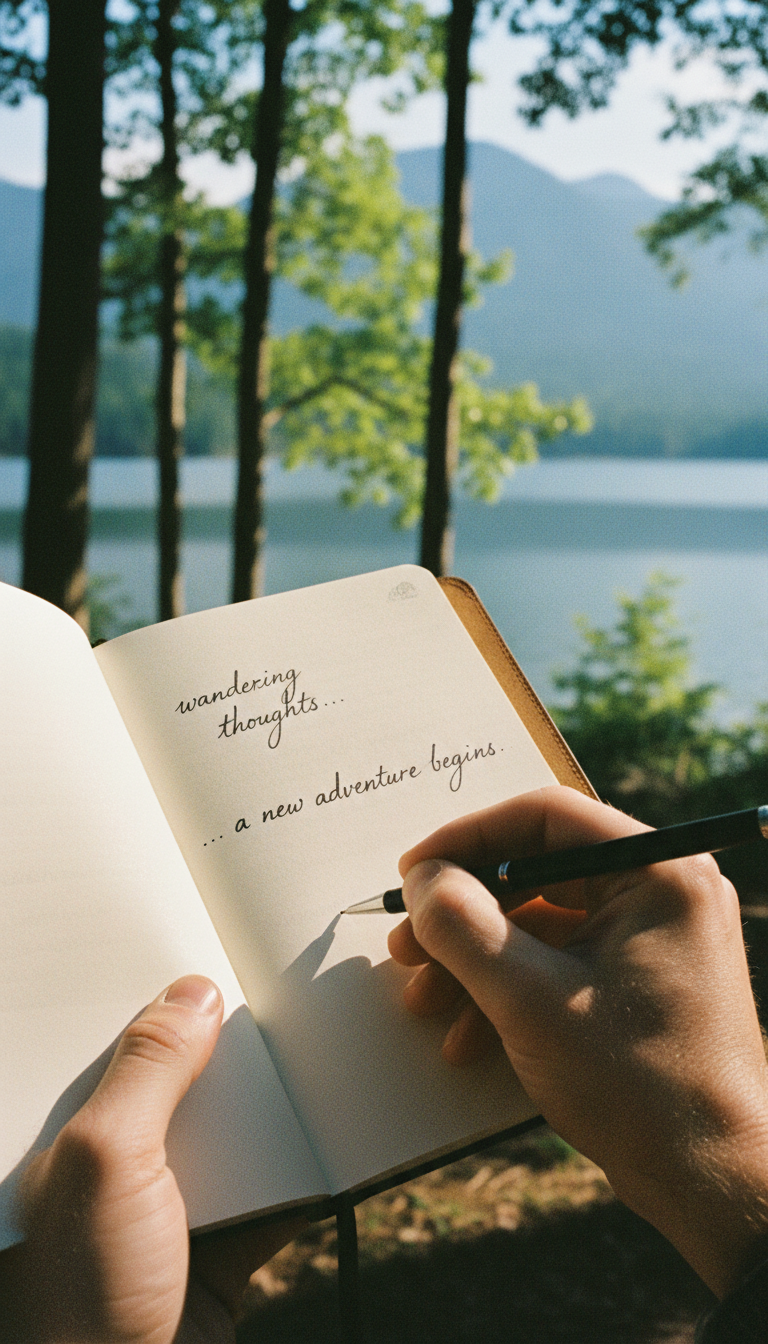 wandering
thoughts...
... a new adventure begins.